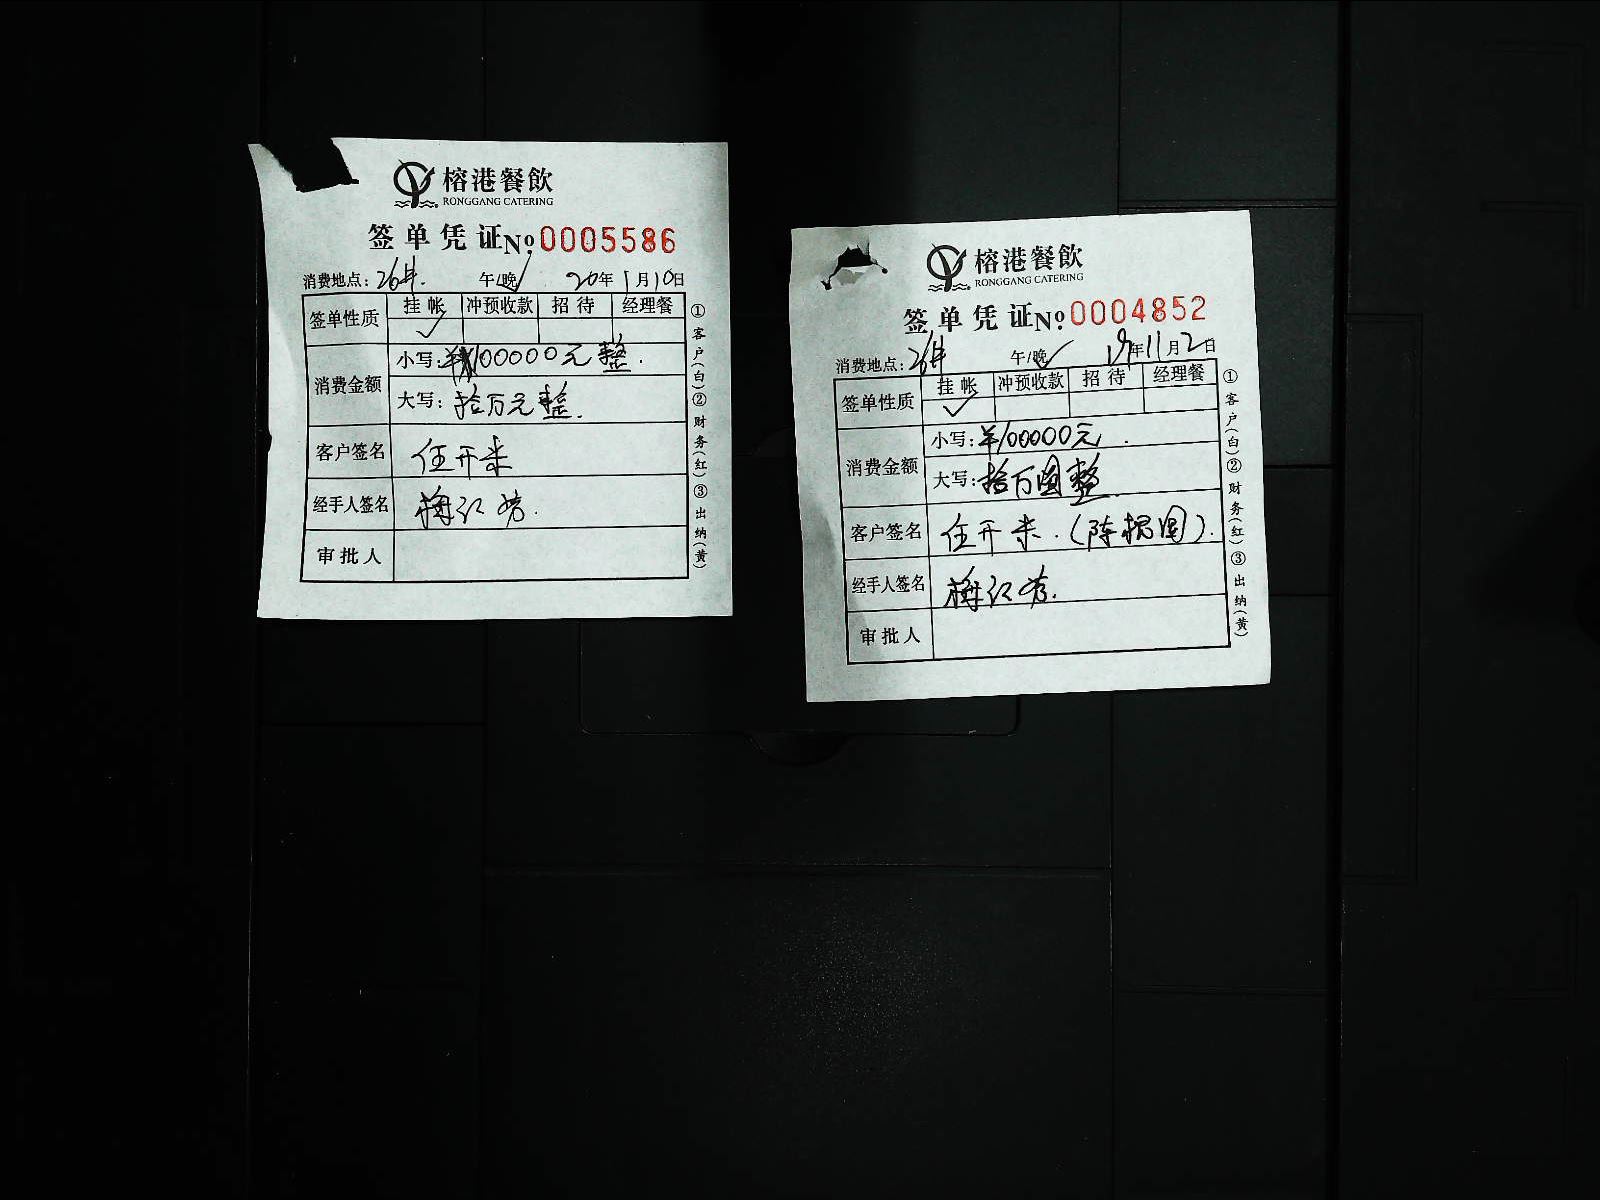 榕港餐飲
RONGGANG CATERING
签单凭证 No. 0005586
消费地点: 26# 午/晚✓ 20年1月10日
签单性质 挂帐 冲预收款 招待 经理餐
✓
消费金额
小写: ¥100000元整.
大写: 拾万元整.
客户签名 任开来
经手人签名 梅红芳.
审批人
①客户(白)②财务(红)③出纳(黄)
榕港餐飲
RONGGANG CATERING
签单凭证 No. 0004852
消费地点: 26# 午/晚✓ 19年11月2日
签单性质 挂帐 冲预收款 招待 经理餐
✓
消费金额
小写: ¥100000元.
大写: 拾万圆整.
客户签名 任开来.(陈 国).
经手人签名 梅红芳.
审批人
①客户(白)②财务(红)③出纳(黄)